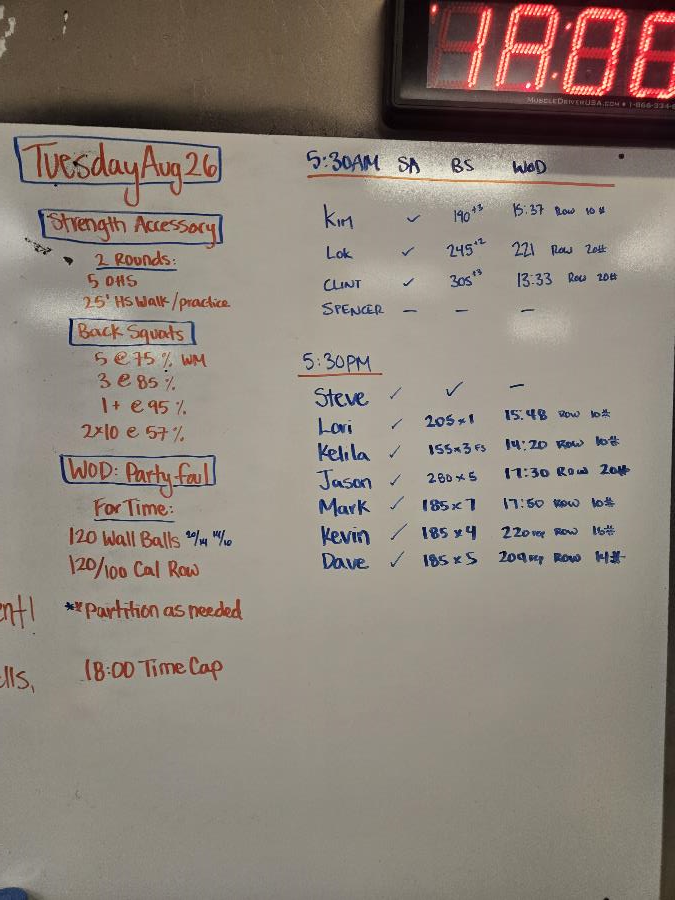 18:00
MUSCLEDRIVERUSA.COM • 1-866-
Tuesday Aug 26
Strength Accessory
2 Rounds:
5 OHS
25' HS Walk/practice
Back Squats
5 @ 75% WM
3 @ 85%
1+ @ 95%
2x10 @ 57%
WOD: Party-foul
For Time:
120 Wall Balls 20/14 14/10
120/100 Cal Row
**Partition as needed
18:00 Time Cap
ent!
ells,
5:30AM SA BS WOD
Kim ✓ 190x3 15:37 Row 10#
Lok ✓ 245x2 221 Row 20#
CLINT ✓ 305x3 13:33 Row 20#
SPENCER — — —
5:30PM
Steve ✓ ✓ —
Lori ✓ 205x1 15:48 Row 10#
Kelila ✓ 155x3 FS 14:20 Row 10#
Jason ✓ 280x5 17:30 Row 20#
Mark ✓ 185x7 17:50 Row 10#
Kevin ✓ 185x4 220rep Row 16#
Dave ✓ 185x5 209rep Row 14#